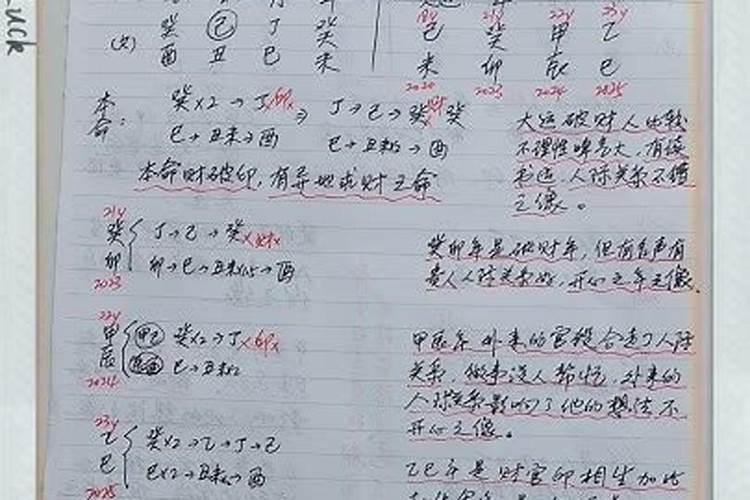 uck
癸 己 丁 癸
(女)
酉 丑 巳 未
18y 21y 22y 23y
己 癸 甲 乙
未 卯 辰 巳
2020 2023 2024 2025
本命:
癸x2→丁x印x ⇒ 丁→己→癸x财x 癸
巳→丑未→酉 巳→丑未x2→酉
本命财破印,有异地求财之命
大运破财人比较
不理性啤气大,有
人际关系不
之像。
21y
癸卯
2023
丁→己→癸x财x
卯→巳→丑未x2→酉
癸卯年是破财年,但有名声有
贵人人际关系好,开心之年之像.
22y
甲辰
2024
甲己 癸x2→丁x印x
辰酉 巳→丑未x2
甲辰年 外来的官杀合走了人际
关系,做事没人帮忙,外来的
人际关系影响了他的想法不
开心之像。
23y
乙巳
2025
癸x2→乙→丁→己
巳x2→丑未x2→酉
乙巳年是财官印相生加比